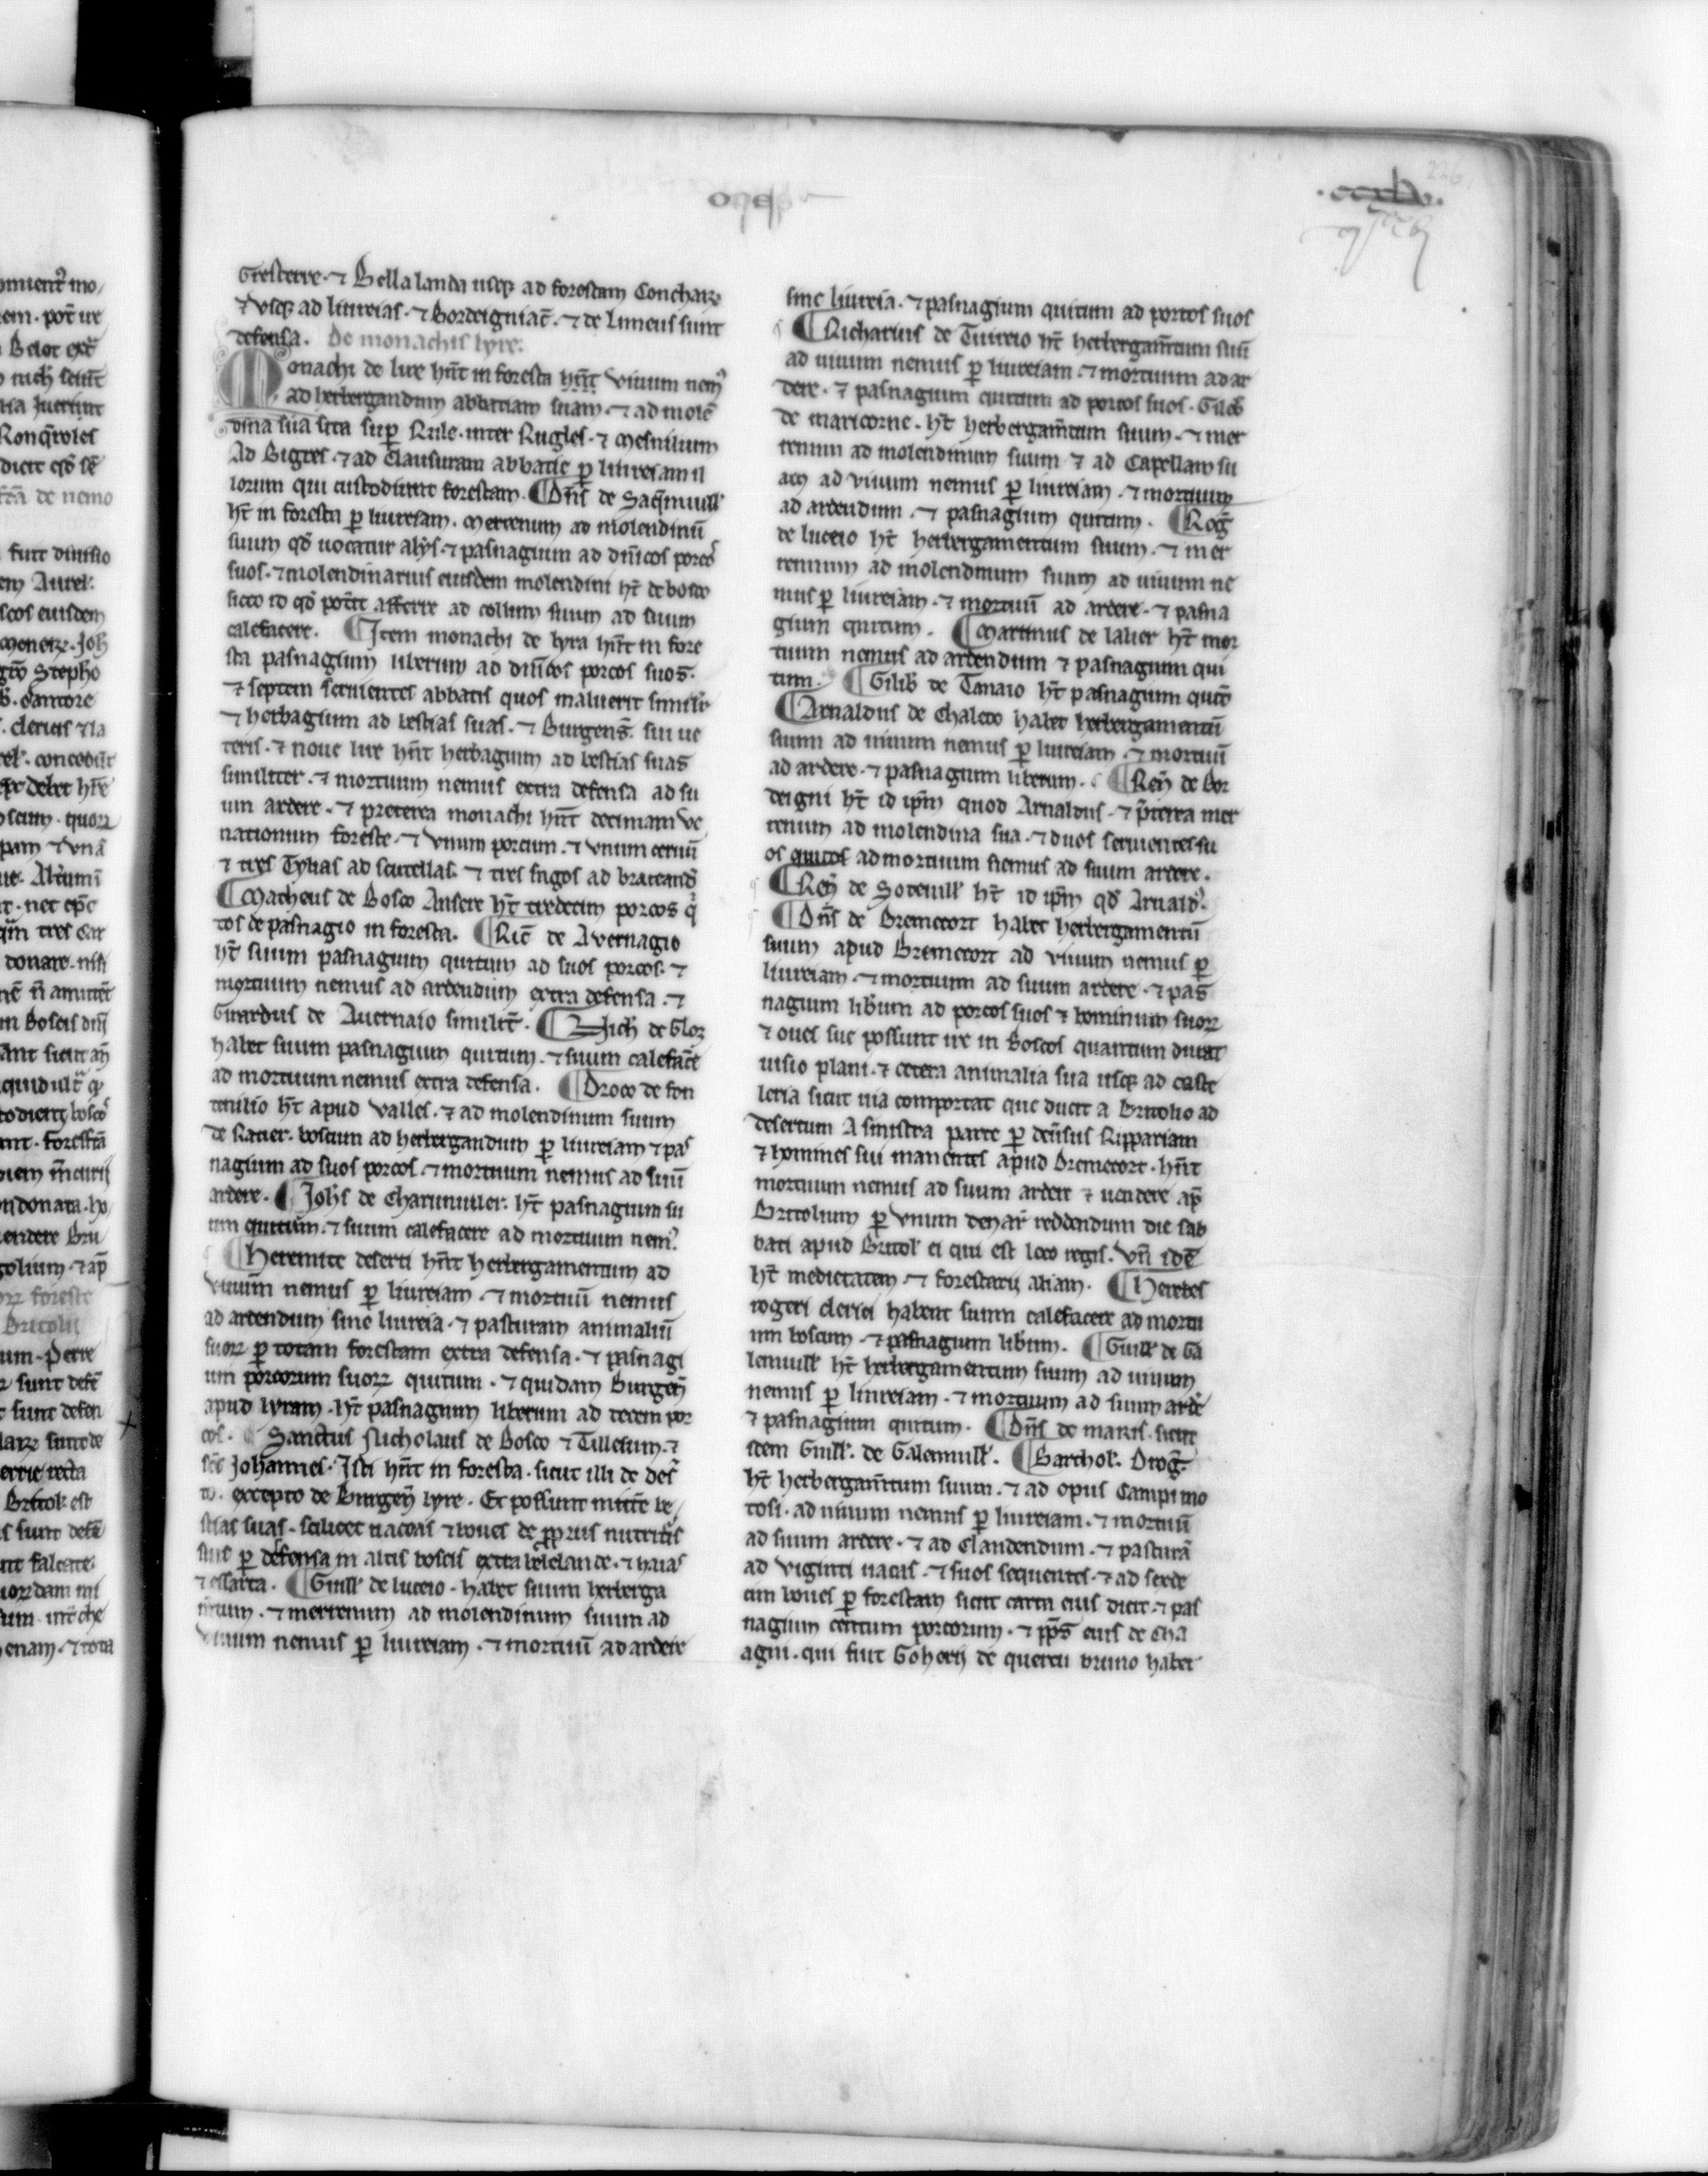 Gresterre. ⁊ Bella landa usq; ad forestam Conchaꝝ
⁊ vsq; ad liureias. ⁊ Bordeigniac̄. ⁊ de Limeus sunt
defensa. De monachis lyre.
Monachi de lire hn̄t in foresta hn̄t viuum nem᷒
ad herbergandum abbatiam suam. ⁊ ad molē
dina sua sita sup̱ Rule. inter Rugles. ⁊ mesnilium
Ad Bigres. ⁊ ad clausuram abbatie p̱ liureiam il
lorum qui custodiunt forestam. ¶ Dn̄s de Saq̄inuill̄
hт̄ in foresta p̱ liureiam. merrenum ad molendinū
suum qd̄ uocatur alys. ⁊ pasnagium ad dn̄icos porcos
suos. ⁊ molendinarius eiusdem molendini ht̄ de bosco
sicco id qd̄ pot̄it afferre ad collum suum ad suum
calefacere. ¶ Item monachi de lyra hn̄t in fore
sta pasnagium liberum ad dn̄icos porcos suos.
⁊ septem seruientes abbatis quos maluerit simil̄r
⁊ herbagium ad bestias suas. ⁊ Burgens̄. sui ue
teris. ⁊ noue lire hn̄t herbagium ad bestias suas
similiter. ⁊ mortuum nemus extra defensa ad su
um ardere. ⁊ preterea monachi hn̄t decimam ve
nationum foreste. ⁊ vnum porcum. ⁊ vnum ceruū
⁊ tres Tybias ad scutellas. ⁊ tres fagos ad braceand̄
¶ Matheus de Bosco Ansere ht̄ tredecim porcos q̇
tos de pasnagio in foresta. ¶ Ric̄ de Avernagio
ht̄ suum pasnagium quitum ad suos porcos. ⁊
mortuum nemus ad ardendum extra defensa. ⁊
Girardus de Auernaio similit̄. ¶ Nich̄ de Gloꝝ
habet suum pasnagium quitum. ⁊ suum calefac̄e
ad mortuum nemus extra defensa. ¶ Droco de fon
tenilio ht̄ apud valles. ⁊ ad molendinum suum
de Ratier. boscum ad herbergandum p̱ liureiam ⁊ pas
nagium ad suos porcos. ⁊ mortuum nemus ad suū
ardere. ¶ Joh̄s de Charunuiler. ht̄ pasnagium su
um quitum. ⁊ suum calefacere ad mortuum nem᷒.
¶ Heremite deserti hn̄t herbergamentum ad
viuum nemus p̱ liureiam. ⁊ mortuū nemus
ad ardendum sine liureia. ⁊ pasturam animaliū
suoꝝ p̱ totam forestam extra defensa. ⁊ pasnagi
um porcorum suoꝝ quitum. ⁊ quidam Burgen̄
apud lyram. ht̄ pasnagium liberum ad decem por
cos. ¶ Sanctus Nicholaus de Bosco ⁊ Tillesum. ⁊
sc̄s Johannes. Isti hn̄t in foresta. sicut illi de des̄
to. excepto de Burgen̄ lyre. Et possunt mitt̄e be
stias suas. scilicet uaccas ⁊ boues de ꝓpriis nutritis
suis p̱ defensa in altis boscis extra belelande. ⁊ haias
⁊ essarta. ¶ Guill̄ de luceio. habet suum herberga
m̄tum. ⁊ merrenum ad molendinum suum ad
viuum nemus p̱ liureiam. ⁊ mortuū ad ardere
·ccxlv·
sine liureia. ⁊ pasnagium quitum ad porcos suos
¶ Richarius de Tuireio ht̄ herbergam̄tum suū
ad uiuum nemus p̱ liureiam. ⁊ mortuum ad ar
dere. ⁊ pasnagium quitum ad porcos suos. Gileb̄
de maricorne. ht̄ herbergam̄tum suum. ⁊ mer
renum ad molendinum suum ⁊ ad Capellam su
am ad viuum nemus p̱ liureiam. ⁊ mortuum
ad ardendum. ⁊ pasnagium quitum. ¶ Roḡ
de luceio ht̄ herbergamentum suum. ⁊ mer
rennum ad molendinum suum ad uiuum ne
mus p̱ liureiam. ⁊ mortuū ad ardere. ⁊ pasna
gium quitum. ¶ Martinus de lalier ht̄ mor
tuum nemus ad ardendum ⁊ pasnagium qui
tum. ¶ Gilib̄ de Tanaio ht̄ pasnagium quit̄
¶ Arnaldus de Chaleto habet herbergamentū
suum ad uiuum nemus p̱ liureiam. ⁊ mortuū
ad ardere. ⁊ pasnagium liberum. ¶ Ren̄ de Bor
deigni ht̄ id ip̄m quod Arnaldus. ⁊ p̄terea mer
renum ad molendina sua. ⁊ duos seruientes su
os quitos ad mortuum nemus ad suum ardere.
¶ Ren̄ de Soteuill̄ ht̄ id ip̄m qd̄ Arnald᷒.
¶ Dn̄s de Bremecort habet herbergamentū
suum apud Bremecort ad viuum nemus p̱
liureiam. ⁊ mortuum ad suum ardere. ⁊ pas̄
nagium lib̄um ad porcos suos ⁊ hominum suoꝝ
⁊ oues sue possunt ire in Boscos quantum durat
uisio plani. ⁊ cetera animalia sua usq; ad caste
leria sicut uia comportat que ducit a Britolio ad
desertum A sinistra parte p̱ deu̅sus Rippariam
⁊ homines sui manentes apud Bremecort. hn̄t
mortuum nemus ad suum ardere ⁊ uendere ap̄
Britolium p̱ vnum denar̄ reddendum die sab
bati apud Britol̄ ei qui est loco regis. Vn̄ idē
ht̄ medietatem. ⁊ forestarij aliam. ¶ Heredes
rogeri clerici habent suum calefacere ad mortu
um boscum. ⁊ pasnagium lib̄um. ¶ Guill̄ de Ga
lenuill̄ ht̄ herbergamentum suum ad uiuum
nemus p̱ liureiam. ⁊ mortuum ad suum ard̄e
⁊ pasnagium quitum. ¶ Dn̄s de maris. sicut
idem Guill̄. de Galennill̄. ¶ Barthol̄. Droḡ.
ht̄ herbergam̄tum suum. ⁊ ad opus Campi mo
tosi. ad uiuum nemus p̱ liureiam. ⁊ mortuū
ad suum ardere. ⁊ ad claudendum. ⁊ pasturā
ad viginti uacas. ⁊ suos sequentes. ⁊ ad sexde
cim boues p̱ forestam sicut carta eius dicit. ⁊ pas
nagium centum porcorum. ⁊ pp̄s̄ eius de cha
agni. qui fuit Goherij de quercu bruno habet